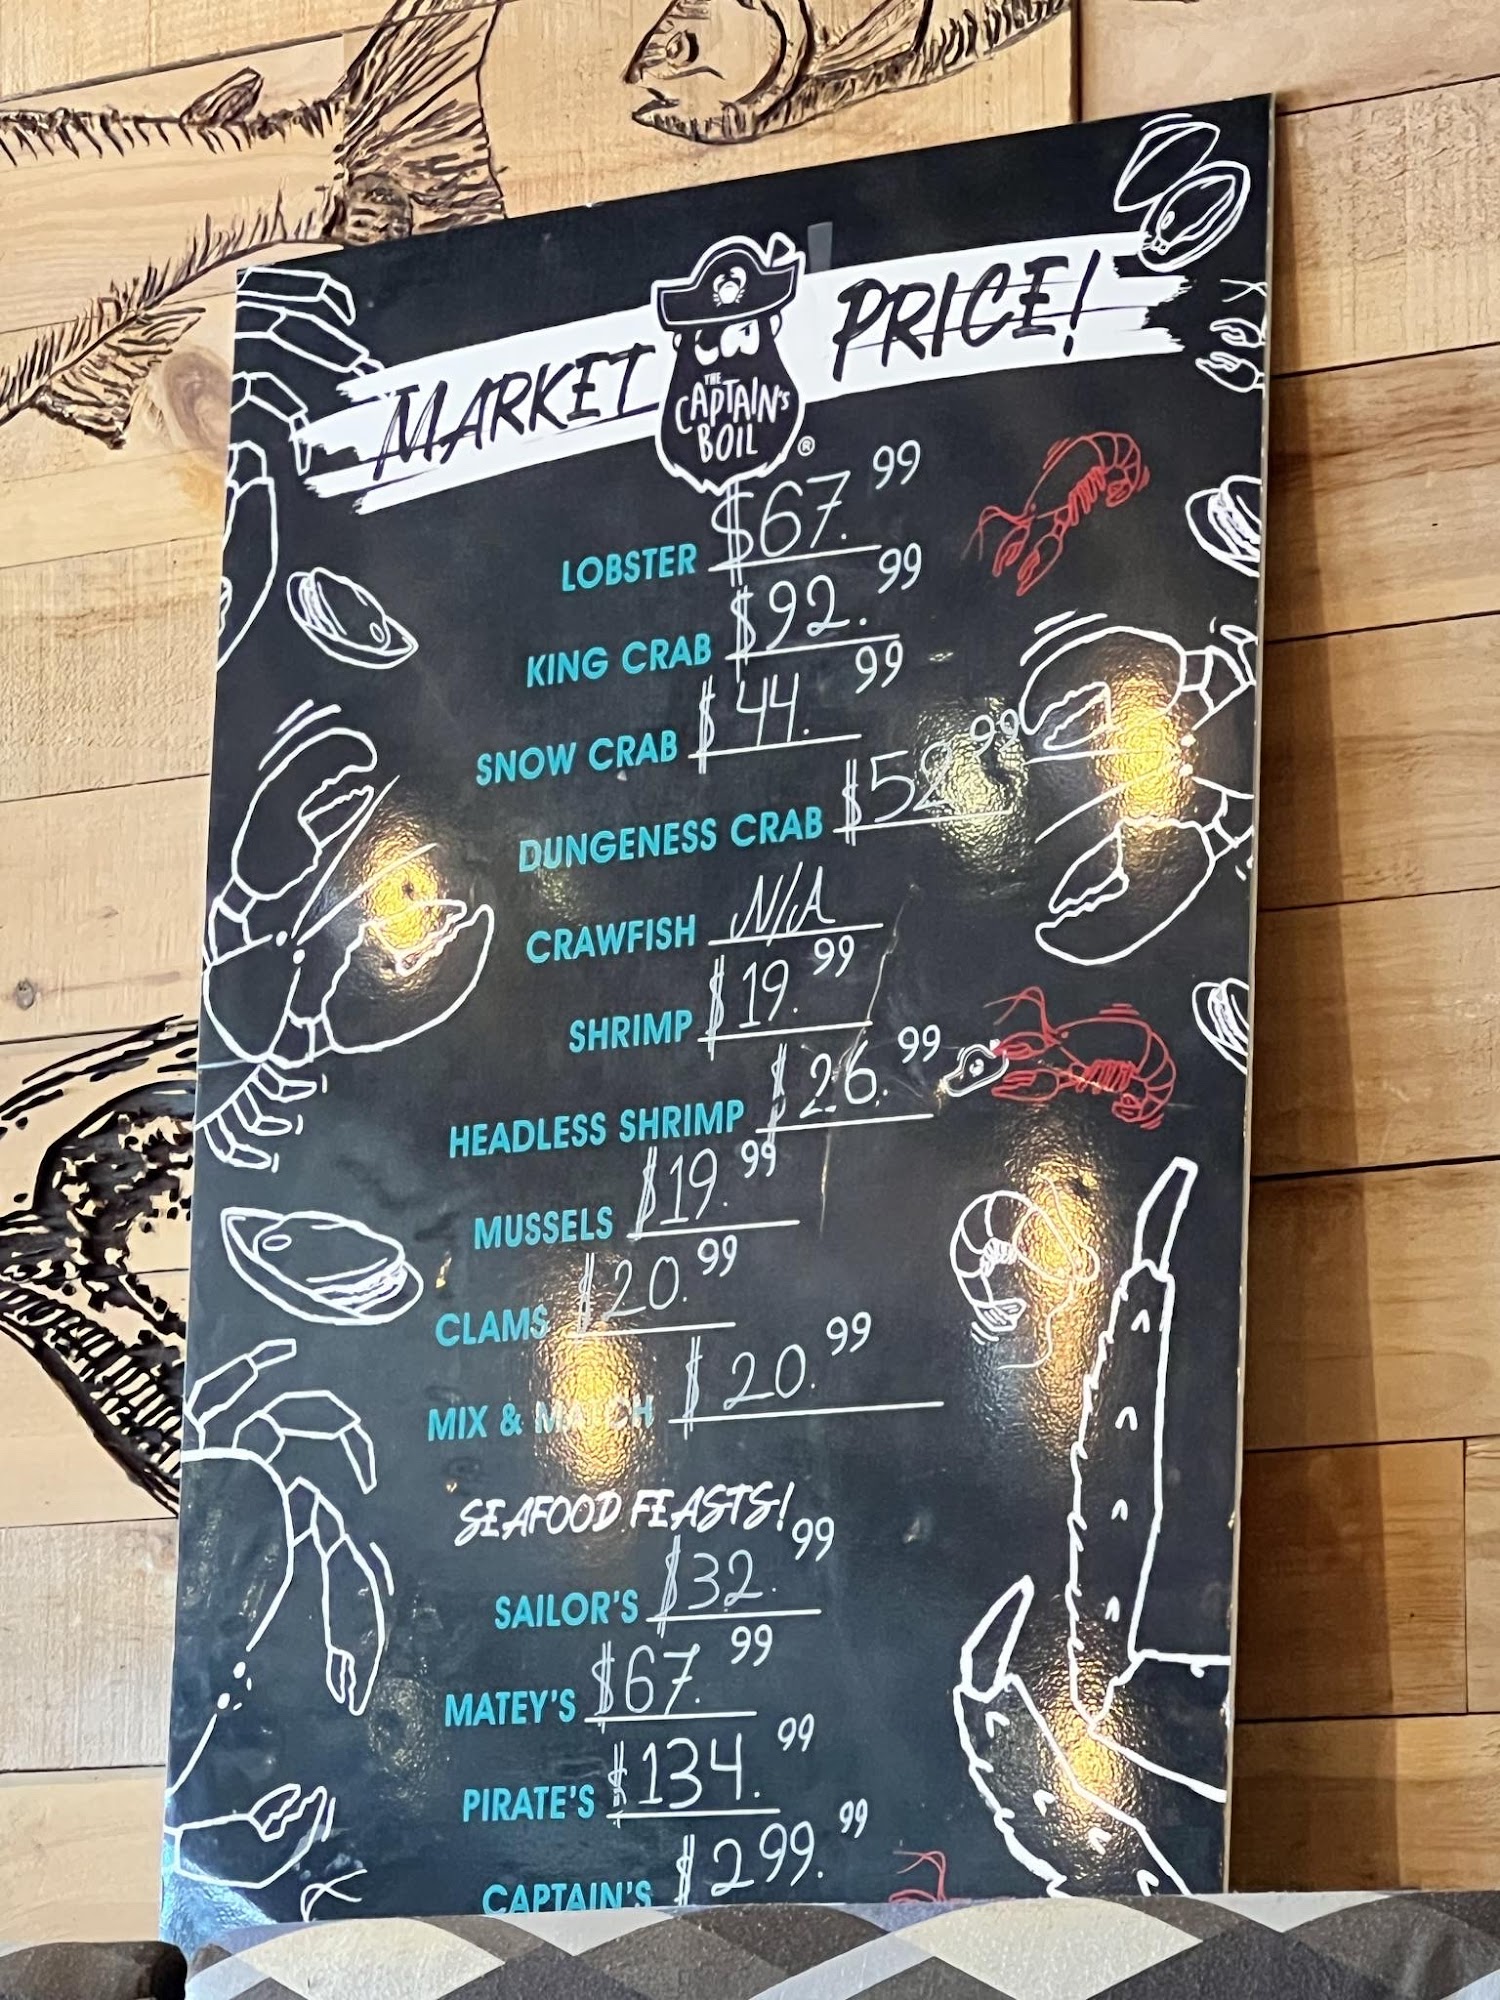 MARKET PRICE!
THE
CAPTAIN'S
BOIL
®
LOBSTER $67.99
KING CRAB $92.99
SNOW CRAB $44.99
DUNGENESS CRAB $52.99
CRAWFISH N/A
SHRIMP $19.99
HEADLESS SHRIMP $26.99
MUSSELS $19.99
CLAMS $20.99
MIX & MATCH $20.99
SEAFOOD FEASTS!
SAILOR'S $32.99
MATEY'S $67.99
PIRATE'S $134.99
CAPTAIN'S $299.99